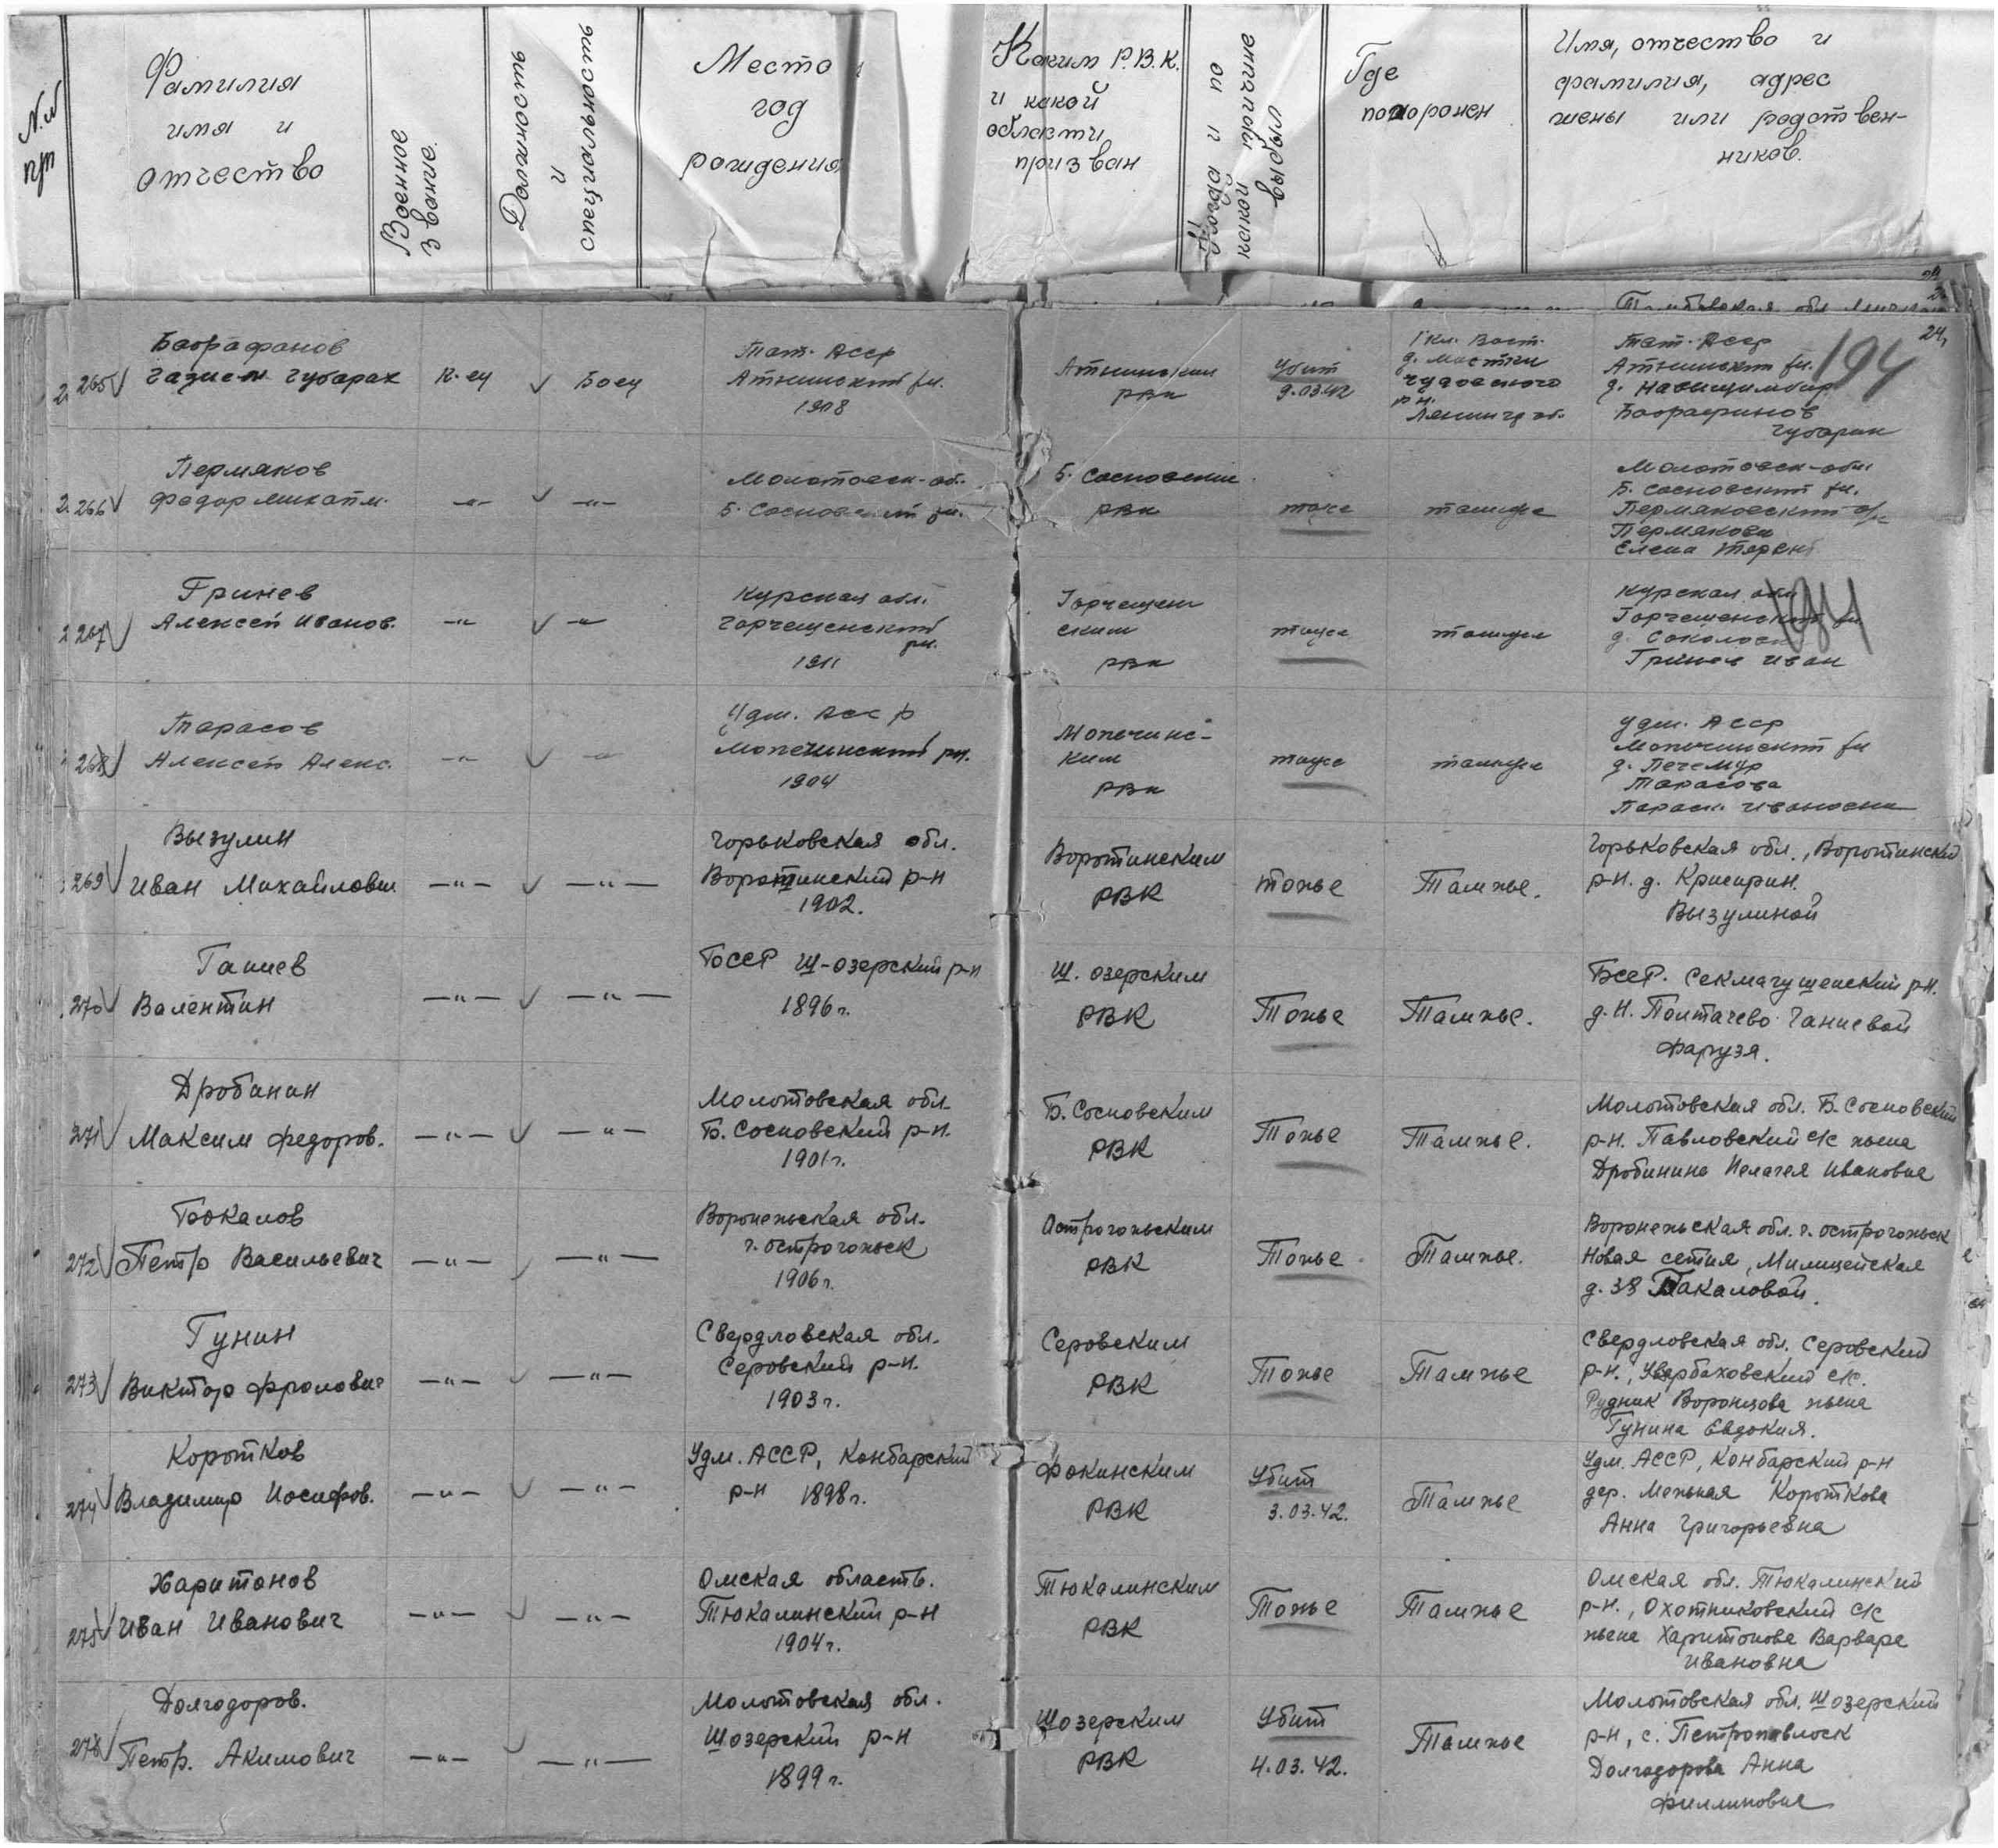 N.N п/п
Фамилия имя и отчество
Военное звание.
Должность и специальность
Место год рождения
Каким Р.В.К. и какой области призван
Когда и по какой причине выбыл
Где похоронен
Имя, отчество и фамилия, адрес жены или родственников.
24,
194
265
К-ец
Боец
Тат. АССР
1908
РВК
Убит
9.03.42
Чудовского
р-н.
Тат. АССР
266
Пермяков
Федор Михайл.
—"—
—"—
Молотовск-об.
Б. Сосновский рн.
Б. Сосновским
РВК
тоже
тамже
Молотовск-обл.
Б. Сосновский рн.
Пермяковский с/с
Пермякова
Елена
267
Гринев
Алексей Иванов.
—"—
—"—
Курская обл.
Горчеченский
рн.
1911
РВК
тоже
тамже
Курская обл
194
Гринев Иван
268
Тарасов
Алексей Алекс.
—"—
—"—
Удм. АССР
1904
РВК
тоже
тамже
Удм. АССР
Тарасова
269
Вызулин
Иван Михайлович
—"—
—"—
Горьковская обл.
Воротинский р-н
1902.
Воротинским
РВК
тоже
Тамже.
Горьковская обл., Воротинский
р-н. д.
Вызулиной
270
Ганиев
Валентин
—"—
—"—
БССР Ш-озерский р-н
1896г.
Ш. озерским
РВК
Тоже
Тамже.
БССР.
Ганиевой
Фарузя.
271
Дробинин
Максим Федоров.
—"—
—"—
Молотовская обл.
Б. Сосновский р-н.
1901г.
Б. Сосновским
РВК
Тоже
Тамже.
Молотовская обл. Б. Сосновский
р-н. Павловский с/с жена
Дробинина Пелагея Ивановне
272
Бокалов
Петр Васильевич
—"—
—"—
Воронежская обл.
г. Острогожск
1906г.
Острогожским
РВК
Тоже
Тамже.
Воронежская обл. г. Острогожск
Новая сотня, Милицейская
д. 38 Бакаловой.
273
Гунин
Виктор Фролович
—"—
—"—
Свердловская обл.
Серовский р-н.
1903г.
Серовским
РВК
Тоже
Тамже
Свердловская обл. Серовский
р-н., с/с.
Рудник Воронцова жена
Гунина Евдокия.
274
Коротков
Владимир Иосифов.
—"—
—"—
Удм. АССР, Канбарский
р-н 1898г.
Фокинским
РВК
Убит
3.03.42.
Тамже
Удм. АССР, Канбарский р-н
дер. Межная Короткова
Анна Григорьевна
275
Харитонов
Иван Иванович
—"—
—"—
Омская область.
Тюкалинский р-н
1904г.
Тюкалинским
РВК
Тоже
Тамже
Омская обл. Тюкалинский
р-н., Охотниковский с/с
жена Харитонова Варвара
Ивановна
Долгодоров.
Петр. Акимович
—"—
—"—
Молотовская обл.
Шозерский р-н
1899г.
Шозерским
РВК
Убит
4.03.42.
Тамже
Молотовская обл. Шозерский
р-н, с. Петропавлоск
Долгодорова Анна
Филлиповне